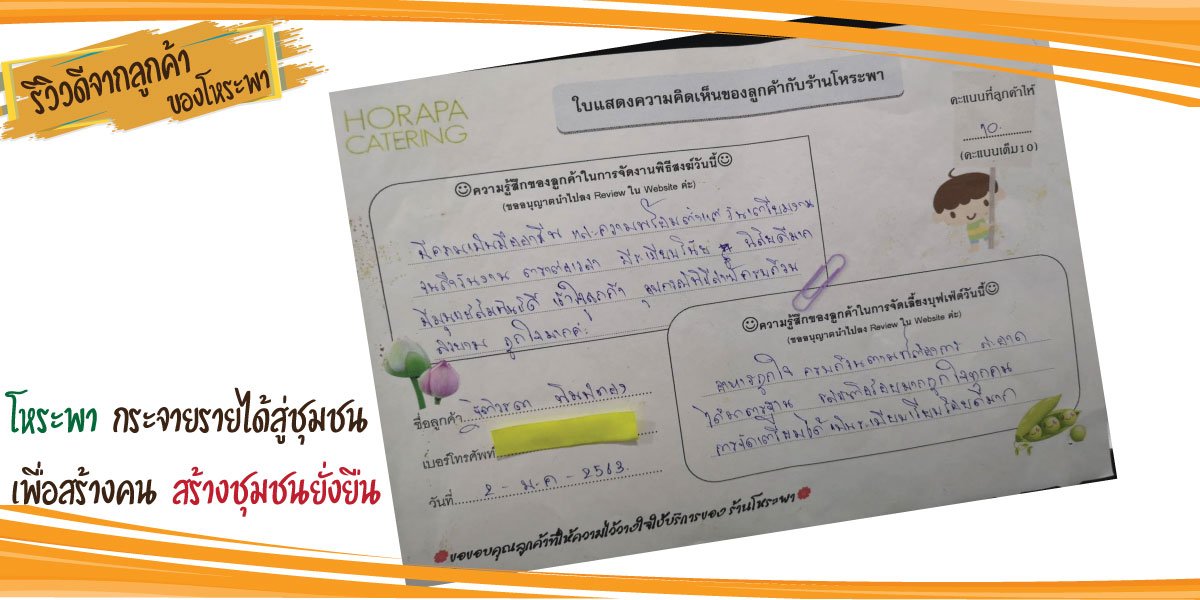 รีวิวดีจากลูกค้า
ของโหระพา
HORAPA
CATERING
ใบแสดงความคิดเห็นของลูกค้ากับร้านโหระพา
คะแนนที่ลูกค้าให้
10
(คะแนนเต็ม10)
ความรู้สึกของลูกค้าในการจัดงานพิธีสงฆ์วันนี้
(ขออนุญาตนำไปลง Review ใน Website ค่ะ)
มีความเป็นมืออาชีพ และความพร้อมตั้งแต่วันเตรียมงาน
จนถึงวันงาน ตรงต่อเวลา มีระเบียบวินัย นิสัยดีมาก
มีมนุษย์สัมพันธ์ดี เข้าใจลูกค้า อุปกรณ์พิธีสงฆ์ครบถ้วน
สวยงาม ถูกใจมากค่ะ
ความรู้สึกของลูกค้าในการจัดเลี้ยงบุฟเฟ่ต์วันนี้
(ขออนุญาตนำไปลง Review ใน Website ค่ะ)
อาหารถูกใจ ครบถ้วนตามที่ต้องการ สะอาด
ได้มาตรฐาน รสชาติอร่อยมากถูกใจทุกคน
การจัดเตรียมได้เป็นระเบียบเรียบร้อยดีมาก
ชื่อลูกค้า
เบอร์โทรศัพท์
วันที่ 2 - ม.ค - 2563
ขอขอบคุณลูกค้าที่ให้ความไว้วางใจใช้บริการของ ร้านโหระพา
โหระพา กระจายรายได้สู่ชุมชน
เพื่อสร้างคน สร้างชุมชนยั่งยืน